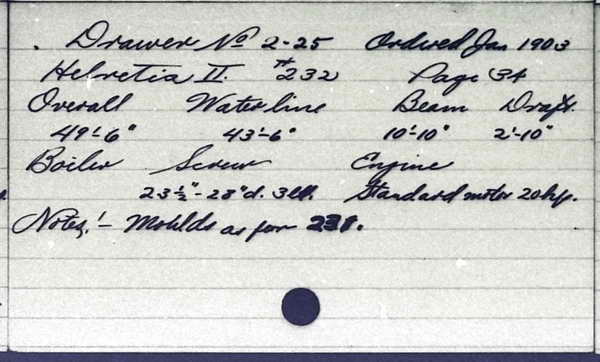 Drawer No 2-25 Ordered Jan 1903
Helvetia II. #232 Page 34
Overall Waterline Beam Draft.
49'-6" 43'-6" 10'-10" 2'-10"
Boiler Screw Engine
23½"-28"d. 3bl. Standard motor 20 h.p.
Notes:- Moulds as for 231.